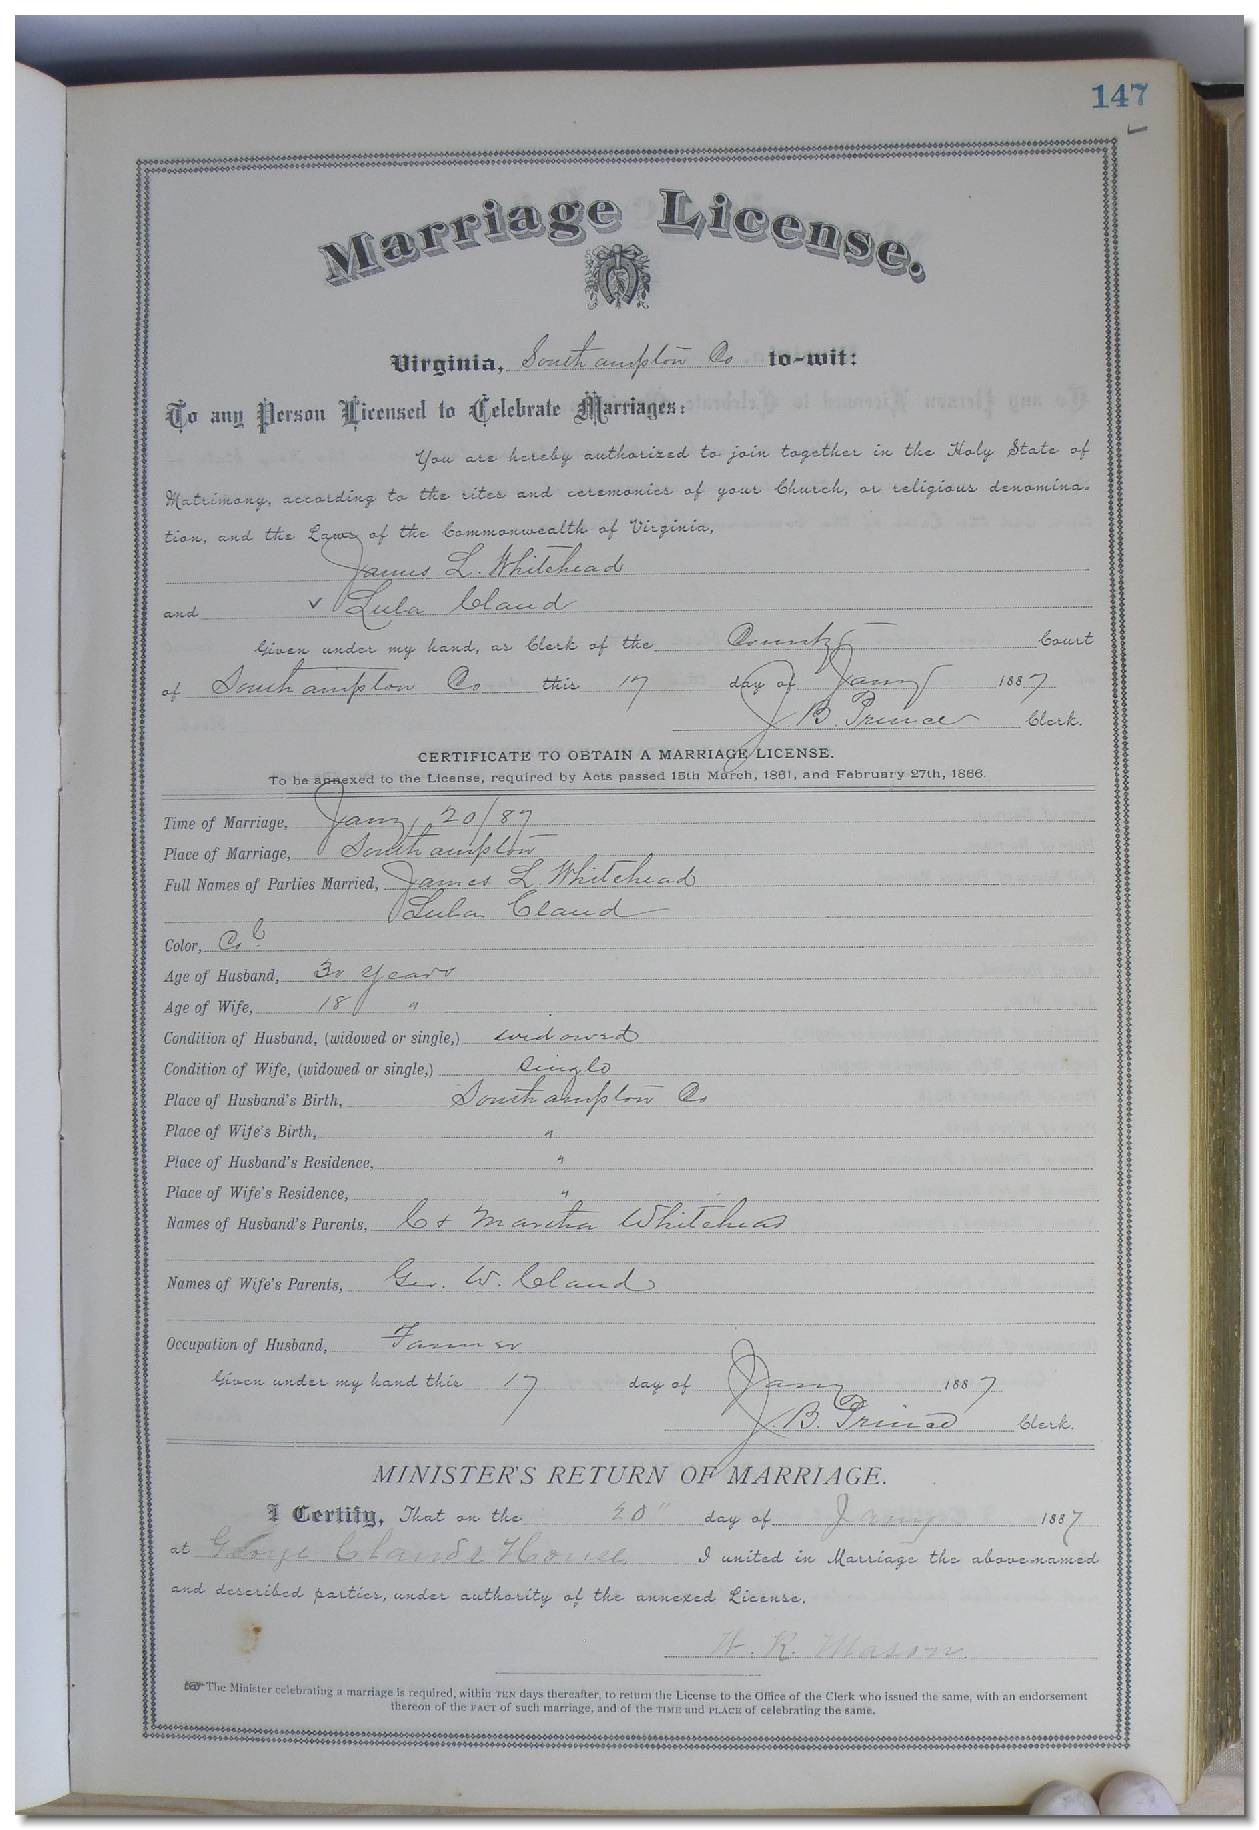 147
Marriage License.
Virginia, Southampton Co to-wit:
To any Person Licensed to Celebrate Marriages:
You are hereby authorized to join together in the Holy State of
Matrimony, according to the rites and ceremonies of your Church, or religious denomina-
tion, and the Laws of the Commonwealth of Virginia,
James L. Whitehead
and Lula Claud
Given under my hand, as Clerk of the County Court
of Southampton Co this 17 day of Jany 1887
J. B. Prince Clerk.
CERTIFICATE TO OBTAIN A MARRIAGE LICENSE.
To be annexed to the License, required by Acts passed 15th March, 1861, and February 27th, 1866.
Time of Marriage, Jany 20/87
Place of Marriage, Southampton
Full Names of Parties Married, James L Whitehead
Lula Claud
Color, Col
Age of Husband, 30 years
Age of Wife, 18 "
Condition of Husband, (widowed or single,) widowed
Condition of Wife, (widowed or single,) single
Place of Husband's Birth, Southampton Co
Place of Wife's Birth, "
Place of Husband's Residence, "
Place of Wife's Residence, "
Names of Husband's Parents, C & Martha Whitehead
Names of Wife's Parents, Geo. W. Claud
Occupation of Husband, Farmer
Given under my hand this 17 day of Jany 1887
J. B. Prince Clerk.
MINISTER'S RETURN OF MARRIAGE.
I Certify, That on the 20" day of Jany 1887
at George Clauds House I united in Marriage the above-named
and described parties, under authority of the annexed License.
W. R. Mason
The Minister celebrating a marriage is required, within TEN days thereafter, to return the License to the Office of the Clerk who issued the same, with an endorsement
thereon of the FACT of such marriage, and of the TIME and PLACE of celebrating the same.